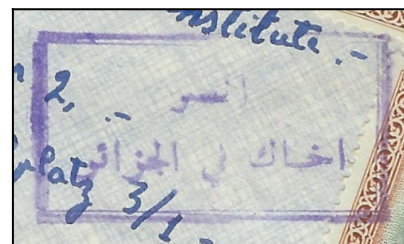 nstitute.-
انصر
2, .-
اخاك في الجزائر
platz 3/1 -